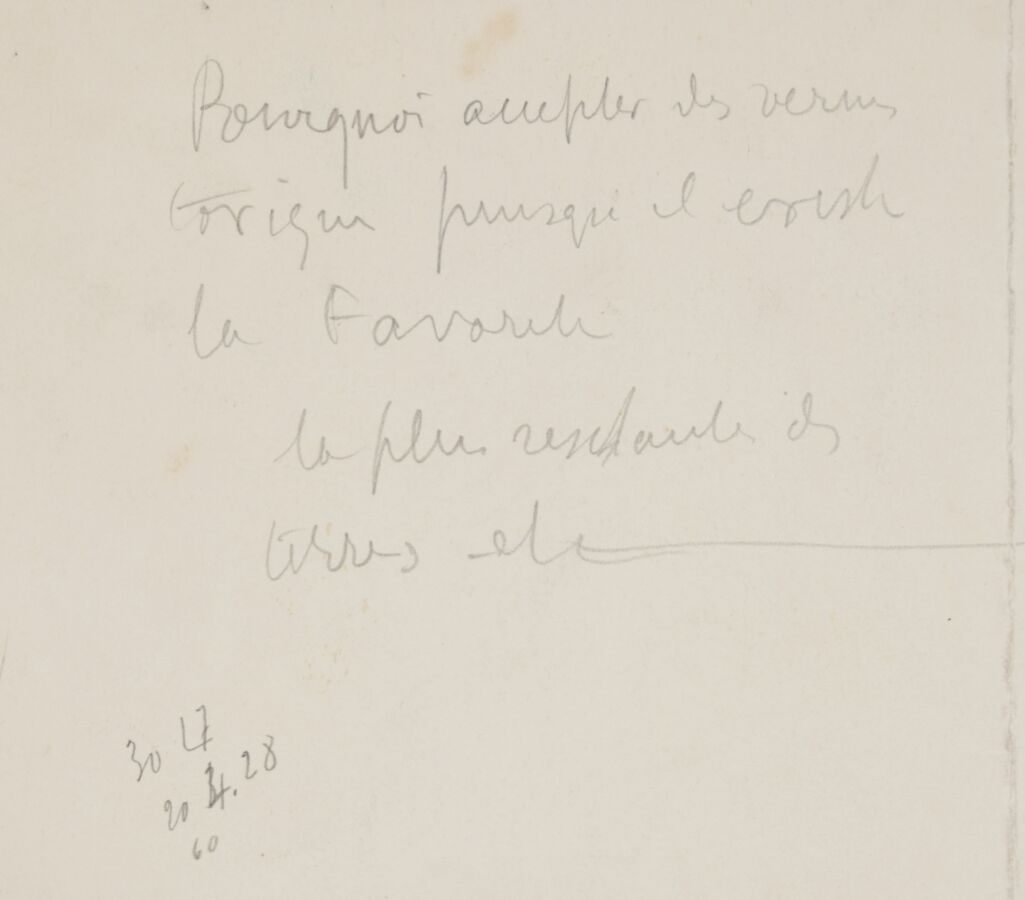 Pourquoi accepter des verres
torique puisqu'il existe
la Favorite
la plus resistante des
terres etc
30 47
20 34.28
60